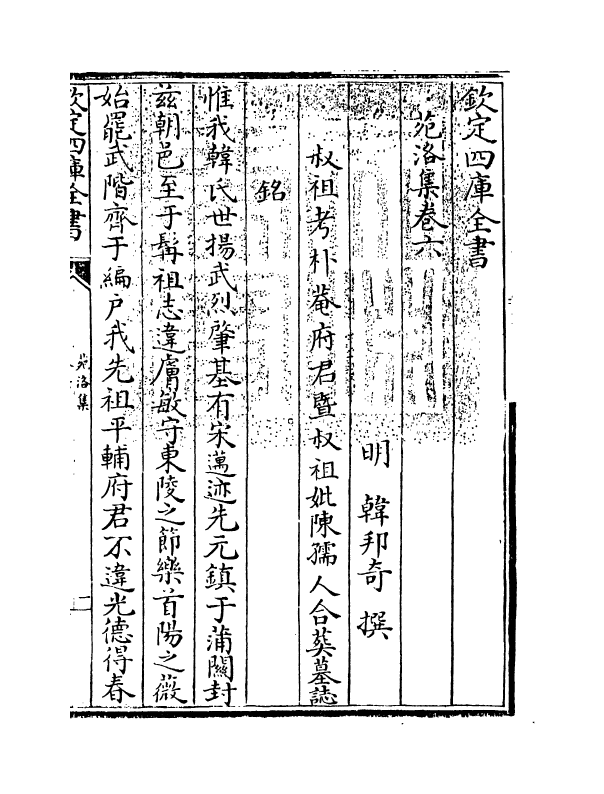 欽定四庫全書
苑洛集卷六
明 韓邦奇 撰
叔祖考朴菴府君暨叔祖妣陳孺人合葬墓誌
銘
惟我韓氏世揚武烈肇基有宋邁迹先元鎮于蒲關封
茲朝邑至于髯祖志違膚敏守東陵之節樂首陽之薇
始罷武階齊于編戶我先祖平輔府君不違光德得春
欽定四庫全書
苑洛集